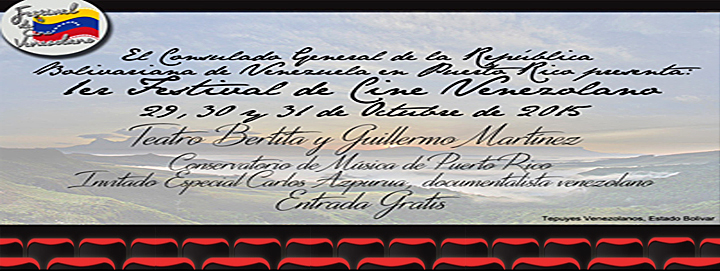 Festival
de Cine
Venezolano
El Consulado General de la República
Bolivariana de Venezuela en Puerto Rico presenta:
1er Festival de Cine Venezolano
29, 30 y 31 de Octubre de 2015
Teatro Bertita y Guillermo Martínez
Conservatorio de Música de Puerto Rico
Invitado Especial Carlos Azpurua, documentalista venezolano
Entrada Gratis
Tepuyes Venezolanos, Estado Bolivar